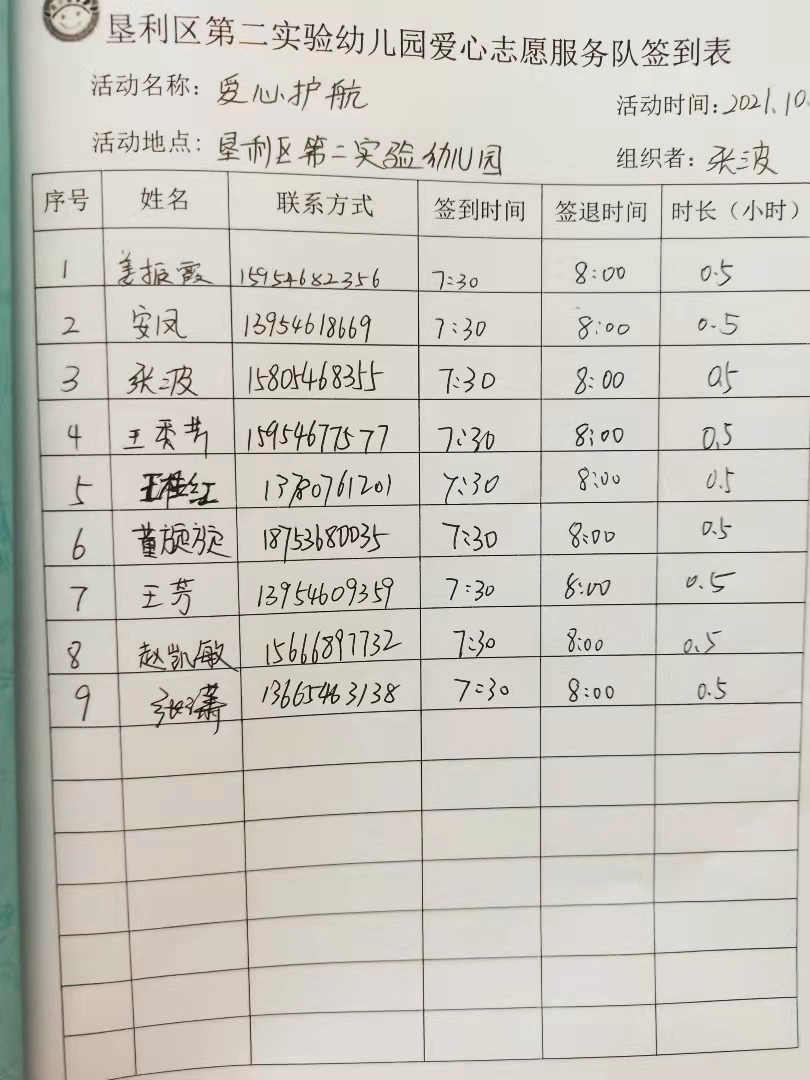 垦利区第二实验幼儿园爱心志愿服务队签到表
活动名称：爱心护航
活动时间：2021.10.
活动地点：垦利区第二实验幼儿园
组织者：张波
序号 姓名 联系方式 签到时间 签退时间 时长（小时）
1 姜振霞 15954682356 7:30 8:00 0.5
2 安凤 13954618669 7:30 8:00 0.5
3 张波 15805468355 7:30 8:00 0.5
4 王秀芳 15954677577 7:30 8:00 0.5
5 王桂红 13780761201 7:30 8:00 0.5
6 董旋旋 18753680035 7:30 8:00 0.5
7 王芳 13954609359 7:30 8:00 0.5
8 赵凯敏 15666897732 7:30 8:00 0.5
9 13665463138 7:30 8:00 0.5